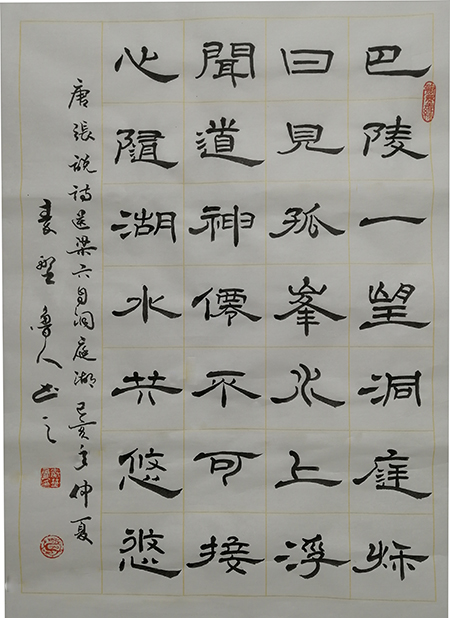 巴陵一望洞庭秋
日見孤峯水上浮
聞道神僊不可接
心隨湖水共悠悠
唐張說詩送梁六自洞庭湖 己亥年仲夏
魯人书之